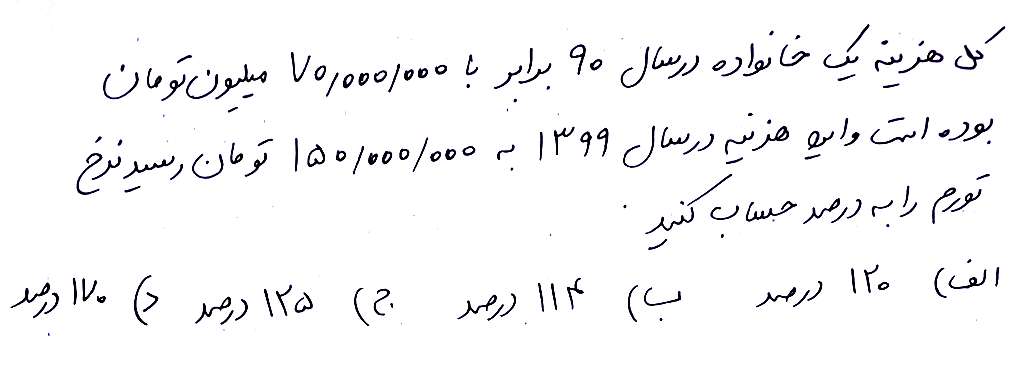 کل هزینه یک خانواده در سال ۹۰ برابر با ۷۰٫۰۰۰٫۰۰۰ میلیون تومان
بوده است و این هزینه در سال ۱۳۹۹ به ۱۵۰٫۰۰۰٫۰۰۰ تومان رسید نرخ
تورم را به درصد حساب کنید
الف) ۱۲۰ درصد ب) ۱۱۴ درصد ج) ۱۲۵ درصد د) ۱۷۰ درصد